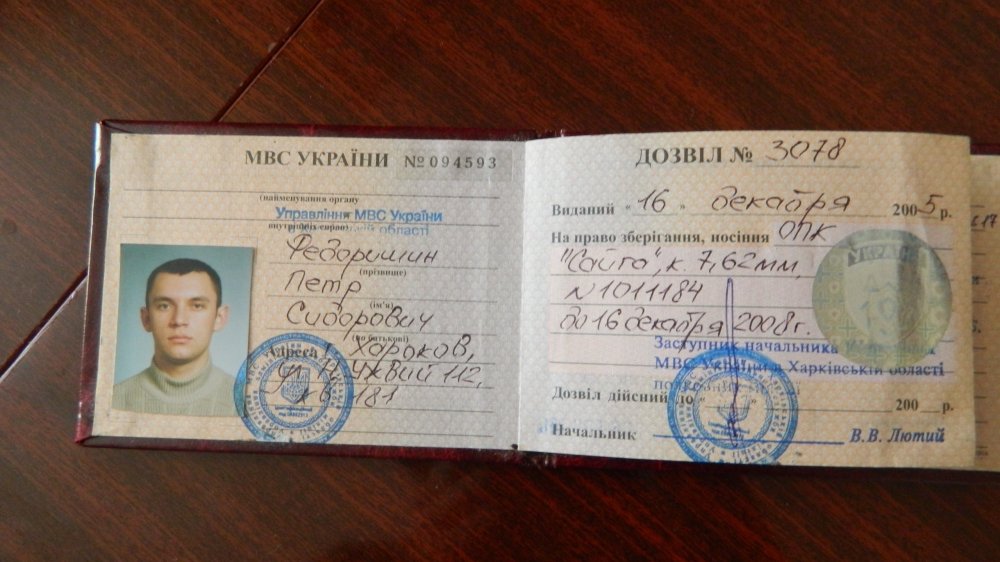 МВС УКРАЇНИ №094593
(найменування органу
Управління МВС України
внутрішніх справ) області
Федоришин
(прізвище)
Петр
(ім'я)
Сидорович
(по батькові)
Адреса г. Харьков,
ул. 112,
кв. 181
ДОЗВІЛ № 3078
Виданий "16" декабря 2005 р.
На право зберігання, носіння ОПК
"Сайга", к. 7,62мм,
N1011184
до 16 декабря 2008г.
Заступник начальника
МВС України в Харківській області
Дозвіл дійсний до 200 р.
Начальник В.В. Лютий